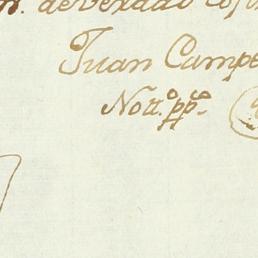 de verdad
Juan Campe
Nott.º pp.co